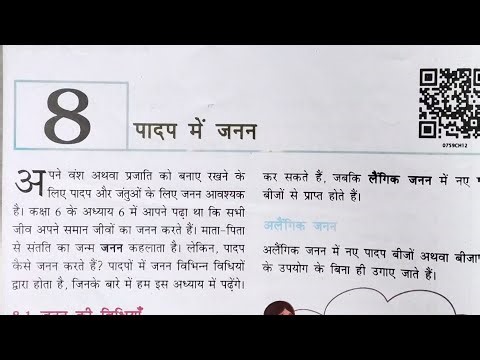 8
पादप में जनन
0759CH12
अपने वंश अथवा प्रजाति को बनाए रखने के
लिए पादप और जंतुओं के लिए जनन आवश्यक
है। कक्षा 6 के अध्याय 6 में आपने पढ़ा था कि सभी
जीव अपने समान जीवों का जनन करते हैं। माता-पिता
से संतति का जन्म जनन कहलाता है। लेकिन, पादप
कैसे जनन करते हैं? पादपों में जनन विभिन्न विधियों
द्वारा होता है, जिनके बारे में हम इस अध्याय में पढ़ेंगे।
8.1 जनन की विधियाँ
कर सकते हैं, जबकि लैंगिक जनन में नए
बीजों से प्राप्त होते हैं।
अलैंगिक जनन
अलैंगिक जनन में नए पादप बीजों अथवा बीजा
के उपयोग के बिना ही उगाए जाते हैं।